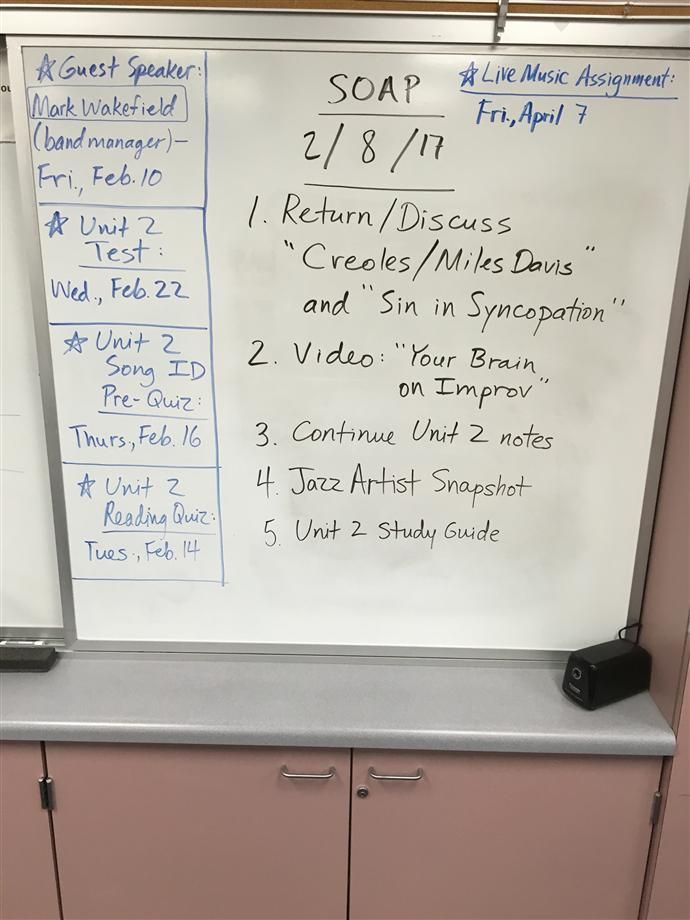 ☆ Guest Speaker:
Mark Wakefield
(band manager) –
Fri., Feb. 10
☆ Unit 2
Test:
Wed., Feb. 22
☆ Unit 2
Song ID
Pre-Quiz:
Thurs., Feb. 16
☆ Unit 2
Reading Quiz:
Tues., Feb. 14
SOAP
2/8/17
1. Return/Discuss
"Creoles/Miles Davis"
and "Sin in Syncopation"
2. Video: "Your Brain
on Improv"
3. Continue Unit 2 notes
4. Jazz Artist Snapshot
5. Unit 2 Study Guide
☆ Live Music Assignment:
Fri., April 7